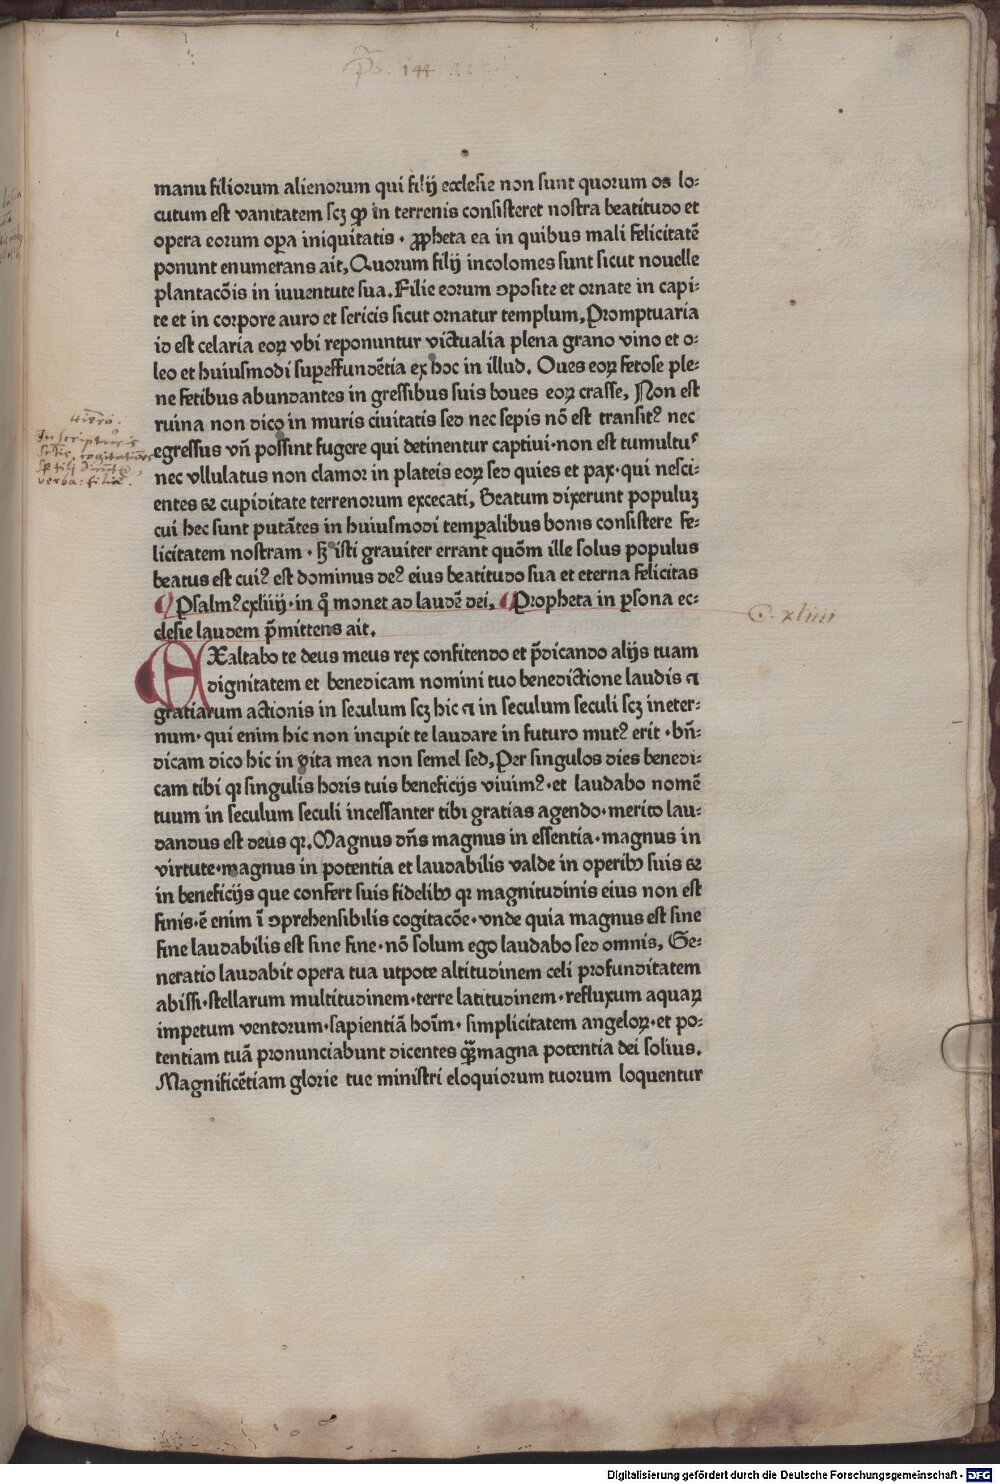 ps. 144
manu filiorum alienorum qui filij ecclesie non sunt quorum os lo-
cutum est vanitatem scꝫ ꝙ in terrenis consisteret nostra beatitudo et
opera eorum oꝑa iniquitatis · ꝓpheta ea in quibus mali felicitatē
ponunt enumerans ait, Quorum filij incolomes sunt sicut nouelle
plantacōis in iuuentute sua. Filie eorum ɔposite et ornate in capi-
te et in corpore auro et sericis sicut ornatur templum, Promptuaria
id est celaria eoꝝ vbi reponuntur victualia plena grano vino et o-
leo et huiusmodi suꝑeffundētia ex hoc in illud. Oues eoꝝ fetose ple-
ne fetibus abundantes in gressibus suis boues eoꝝ crasse, Non est
ruina non dico in muris ciuitatis sed nec sepis nō est transitꝰ nec
egressus vn̄ possint fugere qui detinentur captiui · non est tumultuˢ
nec vllulatus non clamor in plateis eoꝝ sed quies et pax · qui nesci-
entes et cupiditate terrenorum excecati, Beatum dixerunt populuꝫ
cui hec sunt putātes in huiusmodi temꝑalibus bonis consistere fe-
licitatem nostram · sꝫ isti grauiter errant quōm ille solus populus
beatus est cuiꝰ est dominus deꝰ eius beatitudo sua et eterna felicitas
Psalmꝰ cxliiij · in q̄ monet ad laudē dei, Propheta in ꝑsona ec-
clesie laudem p̄mittens ait.
EXaltabo te deus meus rex confitendo et p̄dicando alijs tuam
dignitatem et benedicam nomini tuo benedictione laudis ⁊
gratiarum actionis in seculum scꝫ hic ⁊ in seculum seculi scꝫ ineter-
num · qui enim hic non incipit te laudare in futuro mutꝰ erit · bn̄-
dicam dico hic in vita mea non semel sed, Per singulos dies benedi-
cam tibi qꝛ singulis horis tuis beneficijs viuimꝰ · et laudabo nomē
tuum in seculum seculi incessanter tibi gratias agendo · merito lau-
dandus est deus qꝛ. Magnus dn̄s magnus in essentia · magnus in
virtute · magnus in potentia et laudabilis valde in operibꝫ suis et
in beneficijs que confert suis fidelibꝫ qꝛ magnitudinis eius non est
finis · ē enim ī ɔprehensibilis cogitacōe · vnde quia magnus est sine
fine laudabilis est sine fine · nō solum ego laudabo sed omnis, Ge-
neratio laudabit opera tua utpote altitudinem celi profunditatem
abissi · stellarum multitudinem · terre latitudinem · refluxum aquaꝝ
impetum ventorum · sapientiā hoīm · simplicitatem angeloꝝ · et po-
tentiam tuā pronunciabunt dicentes qͣꝫ magna potentia dei solius.
Magnificētiam glorie tue ministri eloquiorum tuorum loquentur
C. xliiii
Digitalisierung gefördert durch die Deutsche Forschungsgemeinschaft - DFG